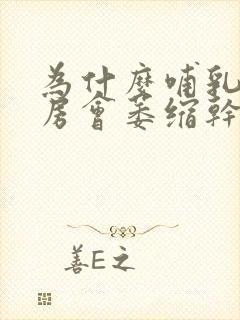 為什麼哺乳
房會萎缩幹
善E之